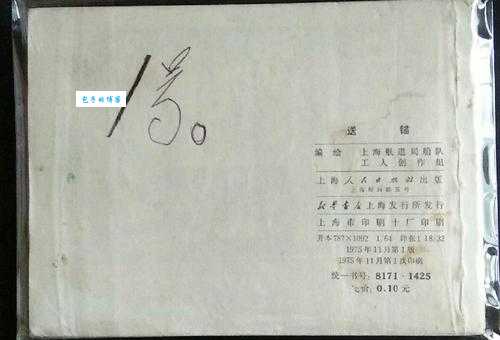 1号。
包子的博客
送 锚
编绘 上海航道局船队
工人创作组
上海人民出版社出版
上海绍兴路五号
新华书店上海发行所发行
上海市印刷十厂印刷
开本787×1092 1/64 印张1 18/32
1975年11月第1版
1975年11月第1次印刷
统一书号: 8171·1425
定价: 0.10 元